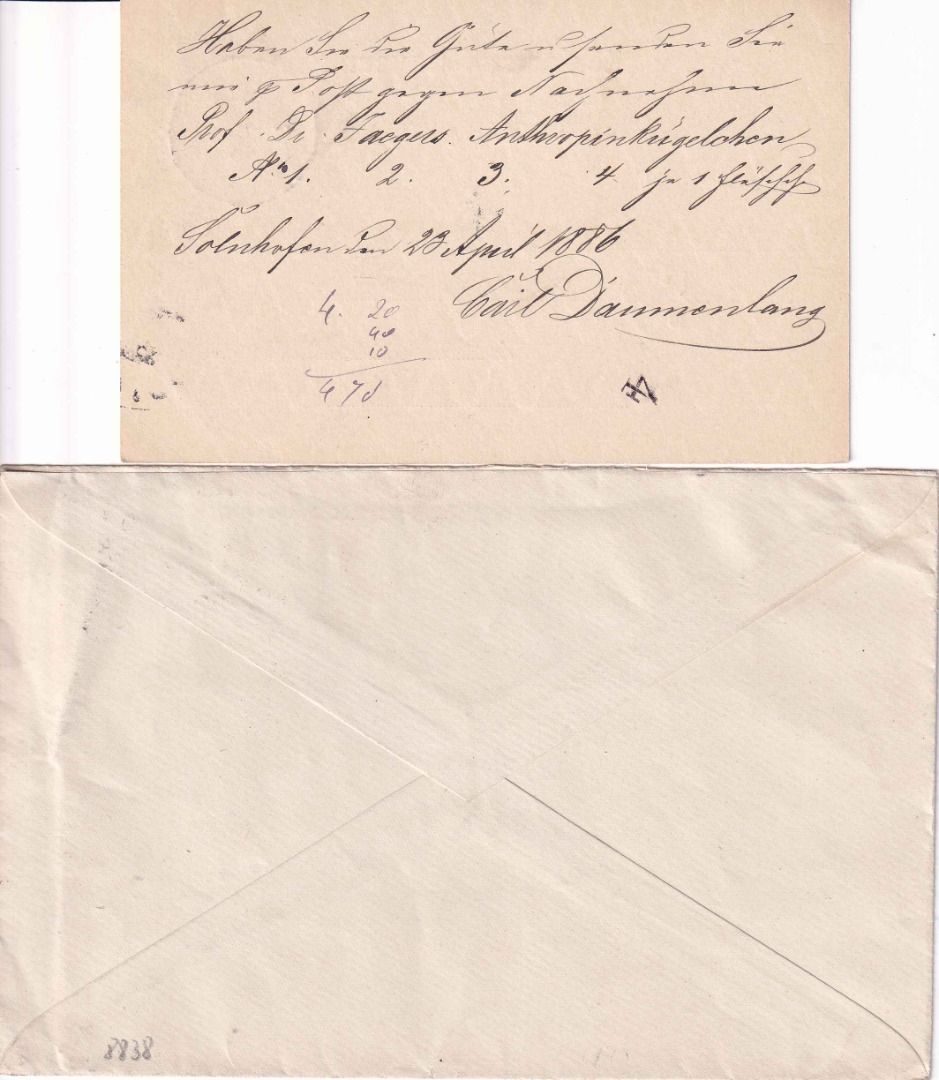 Haben Sie die Güte u senden Sie
mir p Post gegen Nachnahme
Prof. Dr. Jaegers. Anthropinkügelchen
No 1. 2. 3. 4 je 1 Fläschch
Solnhofen den 23 April 1886
Carl Daumenlang
4. 20
40
10
4 70
8838